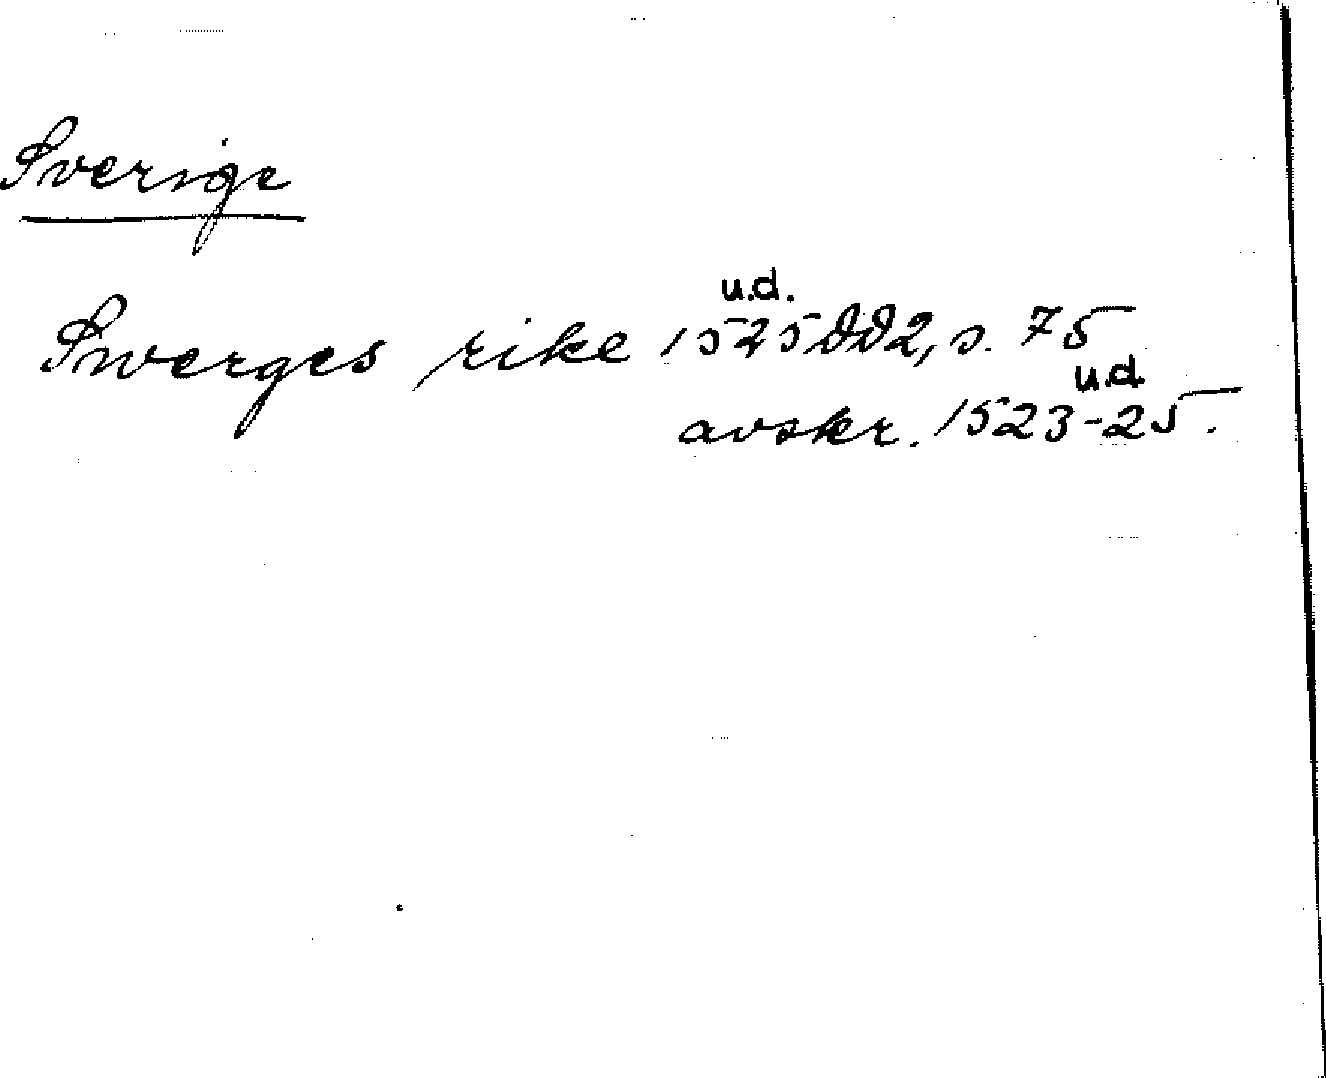 Sverige
Swerges rike 1525 u.d. DD2, s. 75
avskr. 1523-25 u.d.